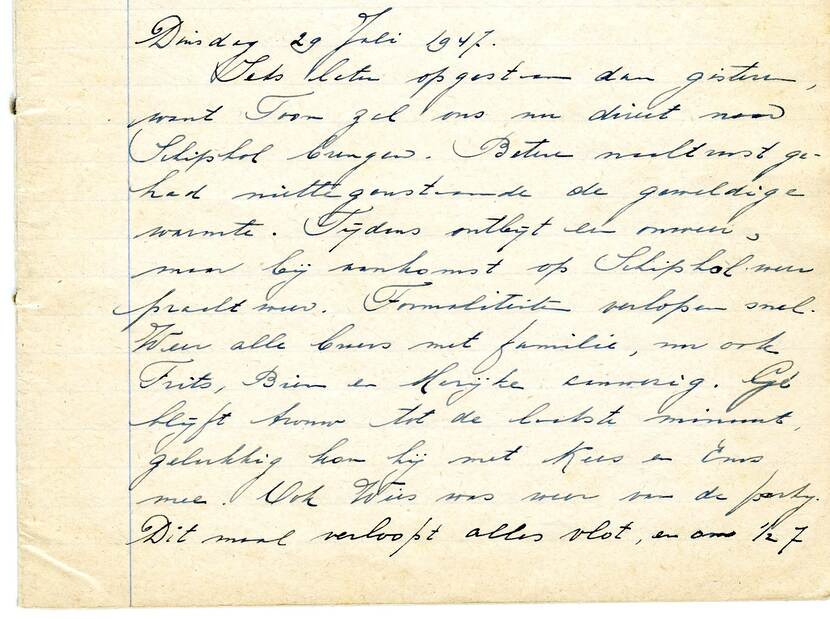 Dinsdag 29 Juli 1947.
Iets later opgestaan dan gisteren,
want Toon zal ons nu direct naar
Schiphol brengen. Betere nachtrust ge-
had niettegenstaande de geweldige
warmte. Tijdens ontbijt een onweer,
maar bij aankomst op Schiphol weer
pracht weer. Formaliteiten verlopen snel.
Weer alle broers met familie, nu ook
Frits, Bien en Marijke aanwezig. Gé
blijft trouw tot de laatste minuut,
gelukkig kon hij met Kees en Ems
mee. Ook Wies was weer van de party.
Dit maal verloopt alles vlot, en om ½ 7